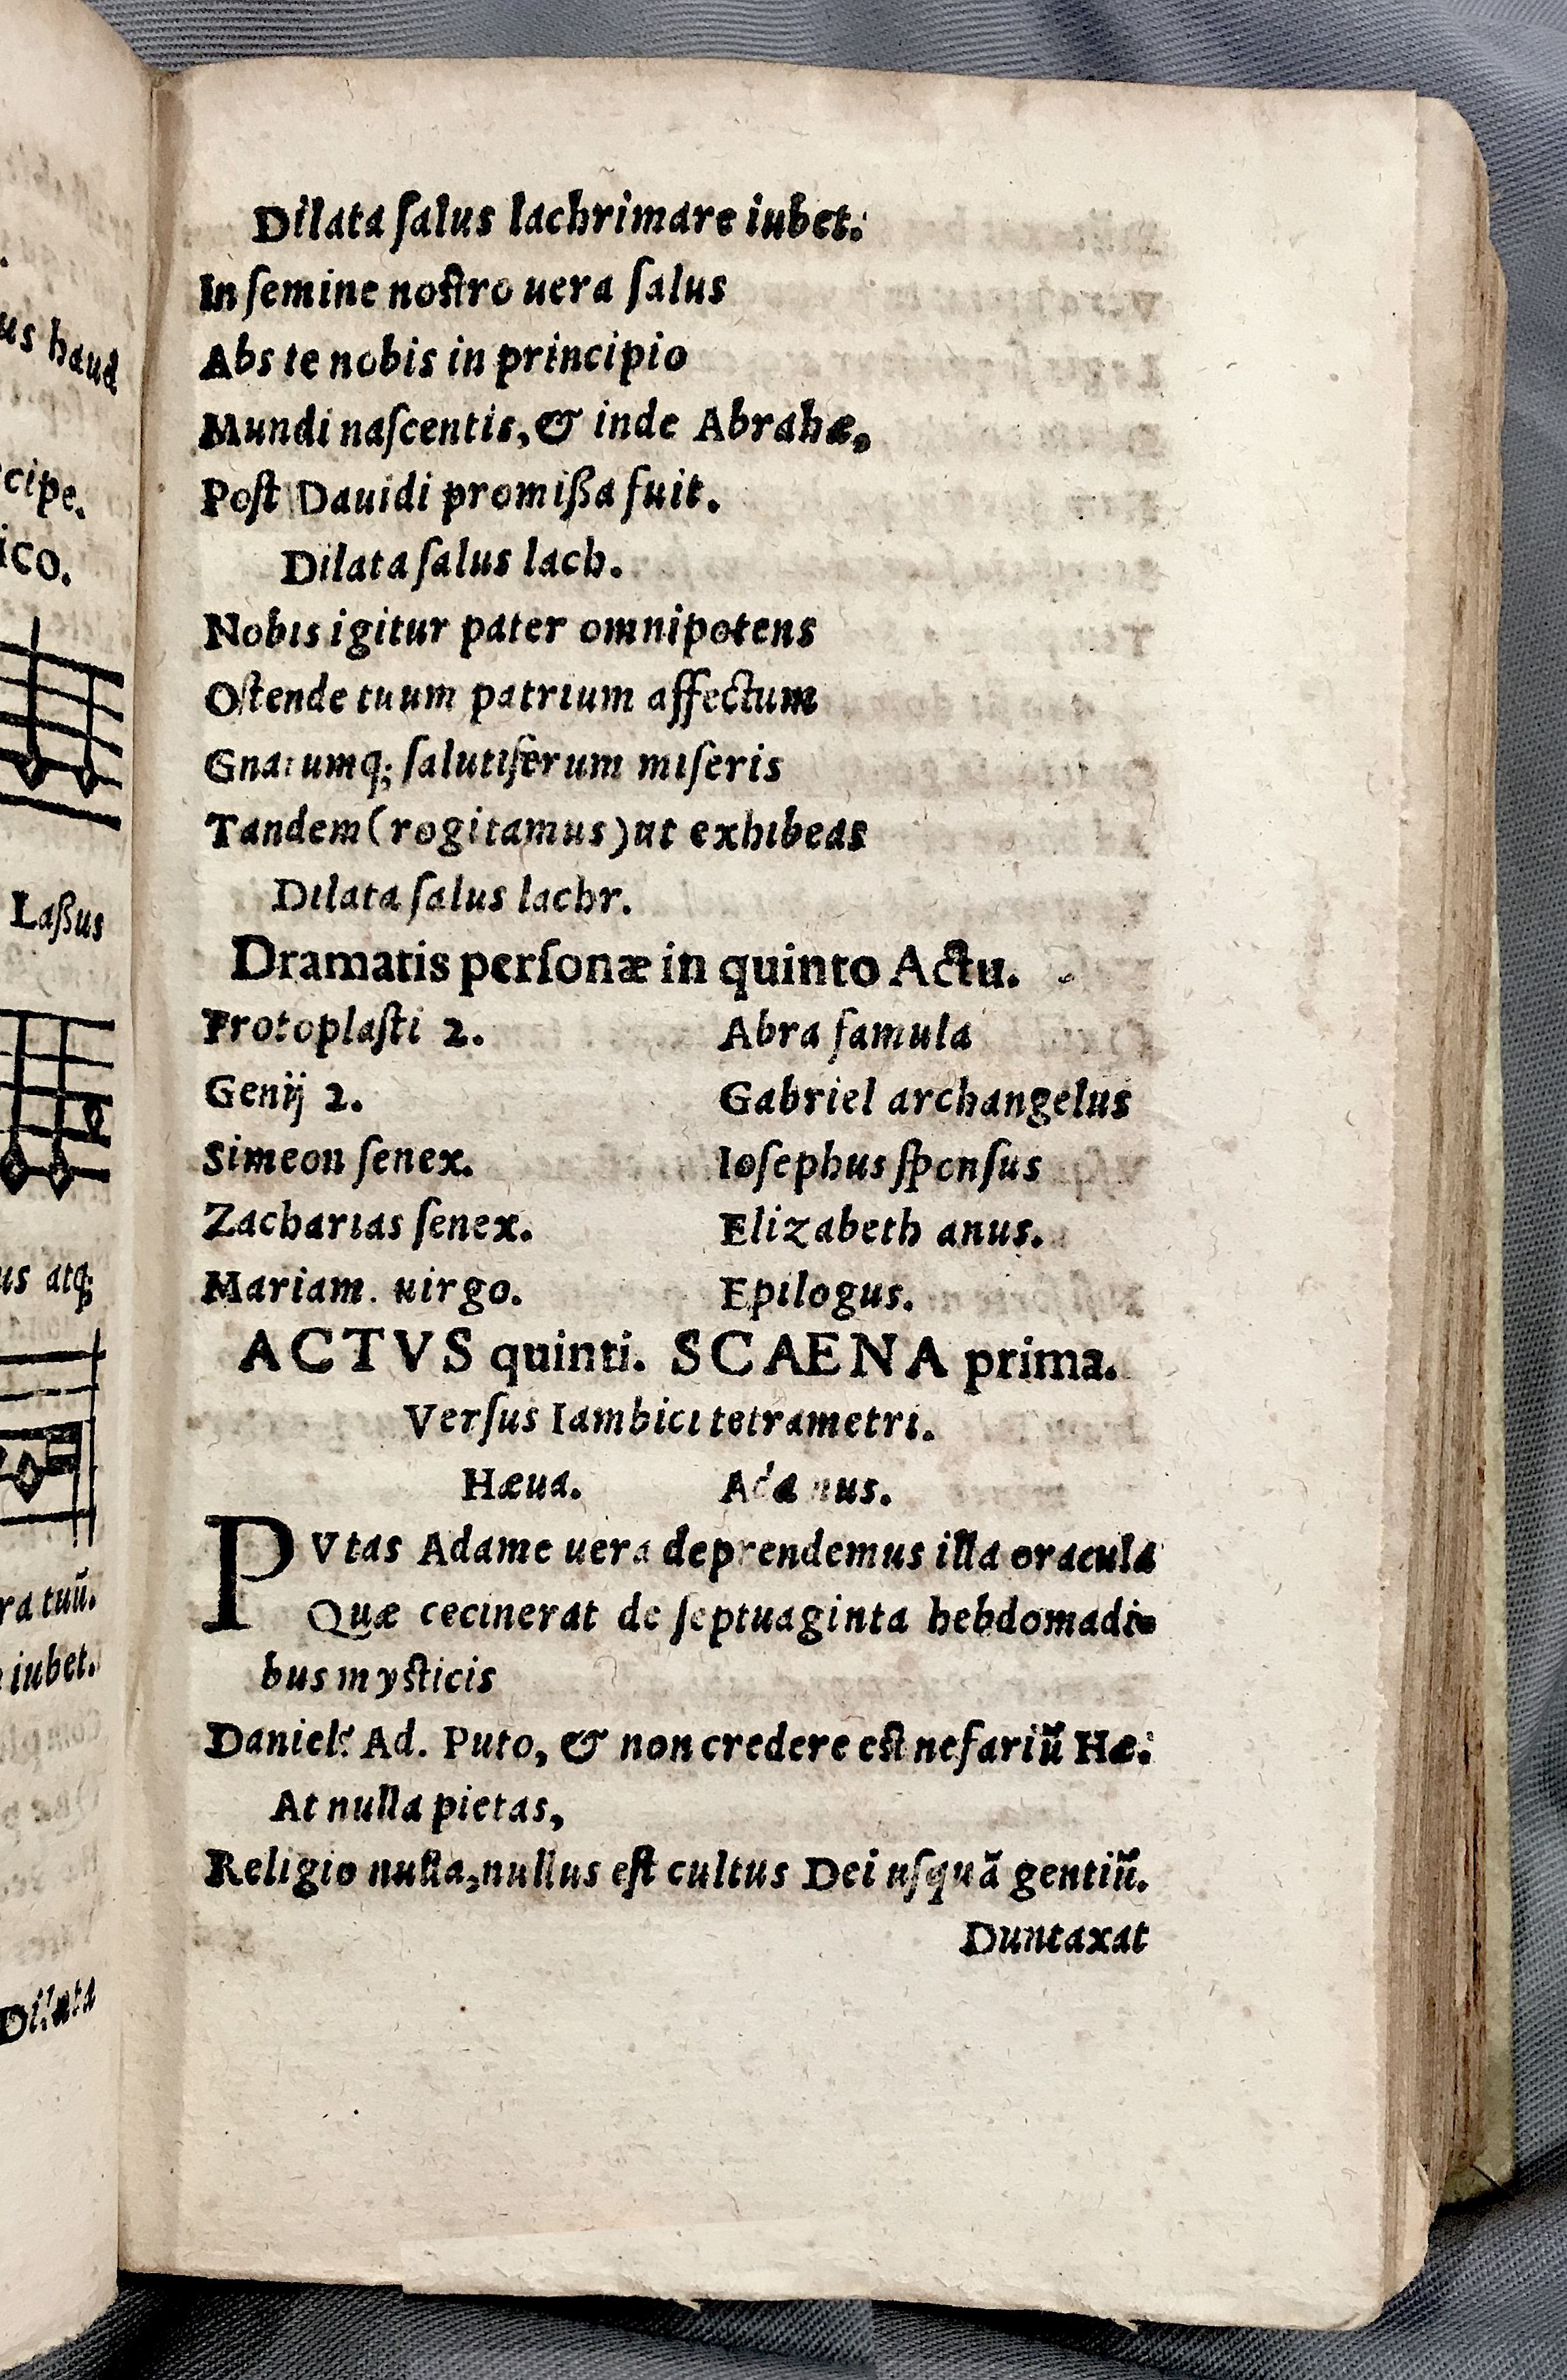 us haud
cipe.
ico.
Laßus
us atq;
ra tuū.
iubet.
Dilata
Dilata ſalus lachrimare iubet.
In ſemine noſtro uera ſalus
Abs te nobis in principio
Mundi naſcentis, & inde Abrahæ,
Poſt Dauidi promißa fuit.
Dilata ſalus lach.
Nobis igitur pater omnipotens
Oſtende tuum patrium affectum
Gnatumq; ſalutiferum miſeris
Tandem (rogitamus) ut exhibeas
Dilata ſalus lachr.
Dramatis perſonæ in quinto Actu.
Protoplaſti 2. Abra famula
Genij 2. Gabriel archangelus
Simeon ſenex. Ioſephus ſponſus
Zacharias ſenex. Elizabeth anus.
Mariam. uirgo. Epilogus.
ACTVS quinti. SCAENA prima.
Verſus Iambici tetrametri.
Hæua. Adamus.
PVtas Adame uera deprendemus illa oracula
Quæ cecinerat de ſeptuaginta hebdomadi-
bus myſticis
Daniel? Ad. Puto, & non credere eſt nefariū Hæ:
At nulla pietas,
Religio nulla, nullus eſt cultus Dei uſquā gentiū.
Duntaxat